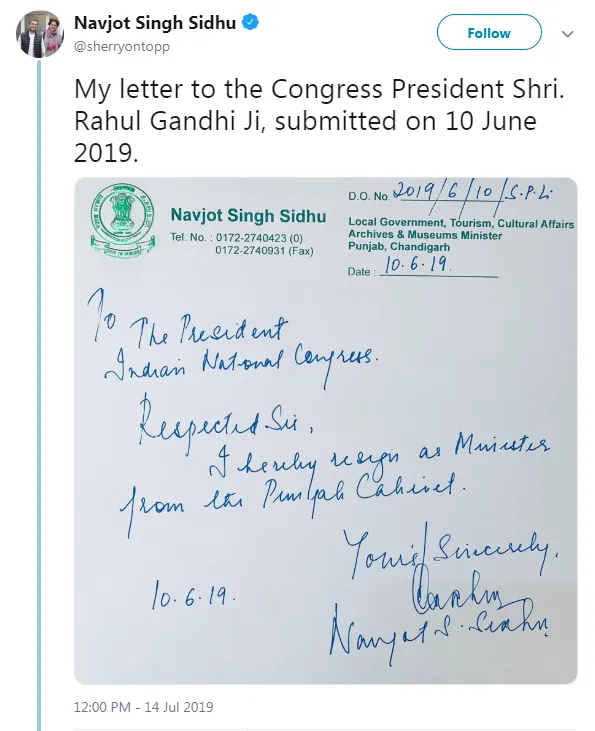 Navjot Singh Sidhu
@sherryontopp
Follow
My letter to the Congress President Shri.
Rahul Gandhi Ji, submitted on 10 June
2019.
D.O. No. 2019/6/10/S.P.L.
Navjot Singh Sidhu
Tel. No. : 0172-2740423 (0)
0172-2740931 (Fax)
Local Government, Tourism, Cultural Affairs
Archives & Museums Minister
Punjab, Chandigarh
Date : 10.6.19.
To
The President
Indian National Congress.
Respected Sir,
I hereby resign as Minister
from the Punjab Cabinet.
Yours Sincerely,
10.6.19.
Navjot S. Sidhu
12:00 PM - 14 Jul 2019